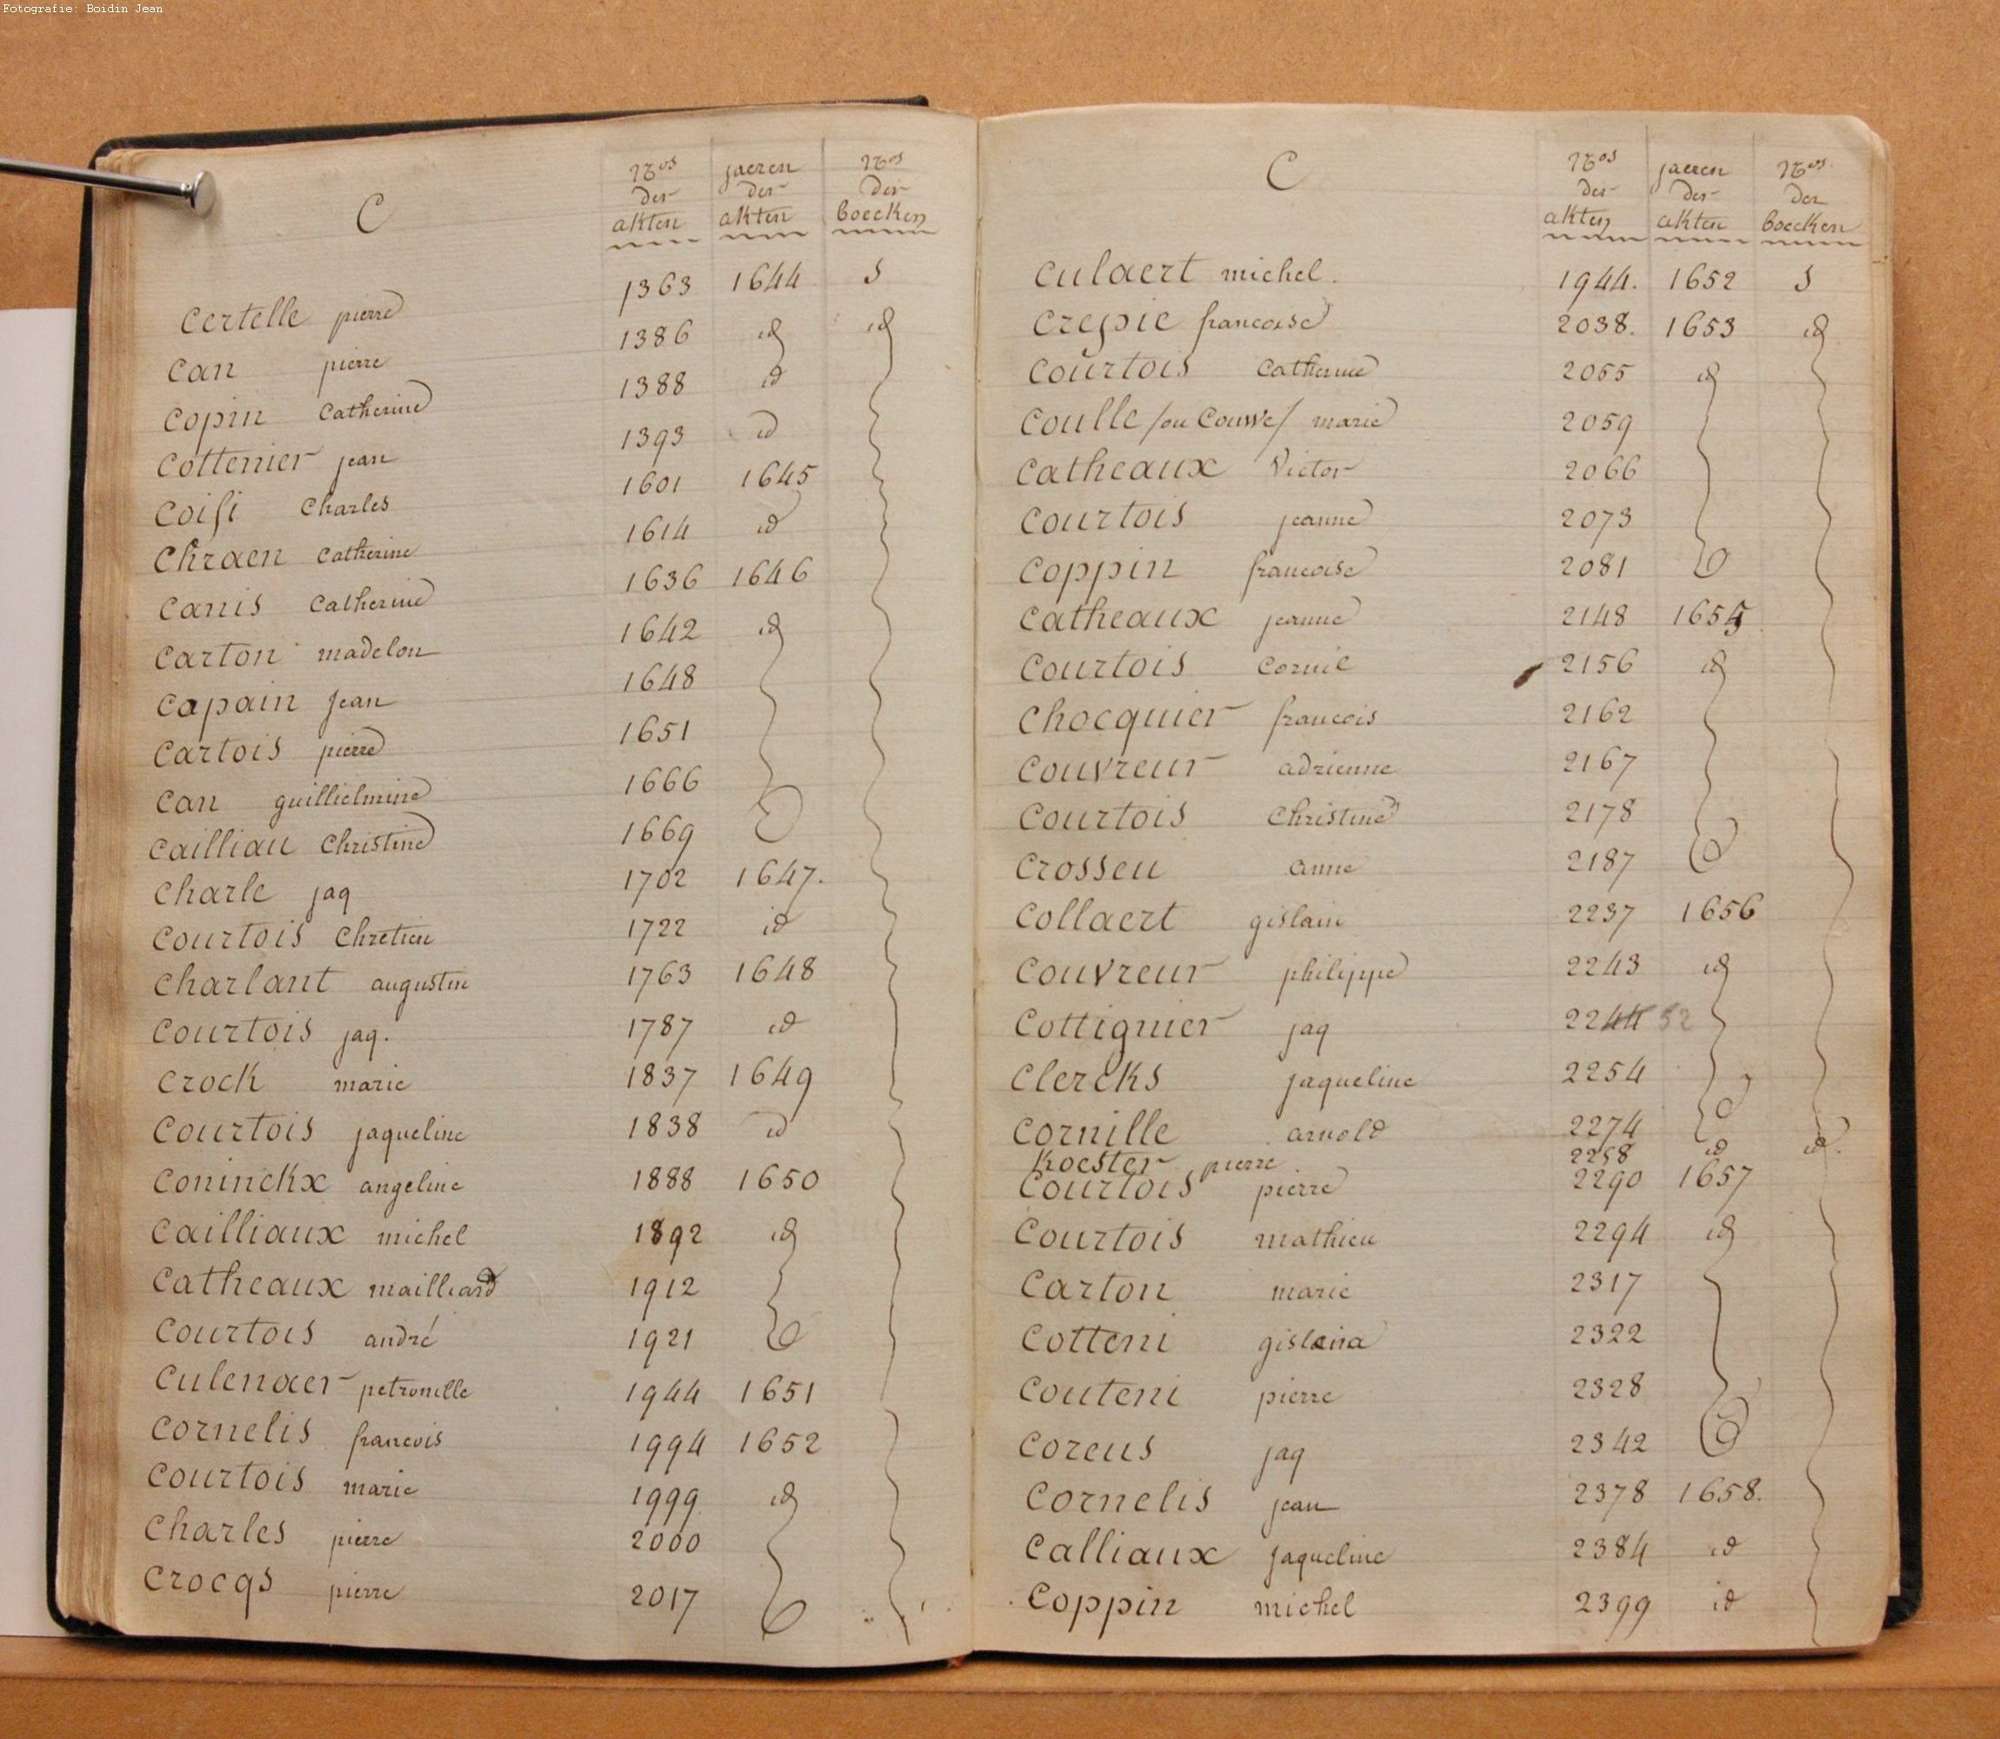 Fotografie: Boidin Jean
C
Nos der akten
jaeren der akten
Nos der boecken
Certelle pierre 1363 1644 5
Can pierre 1386 id id
Copin Catherine 1388 id
Cottenier jean 1393 id
Coisi Charles 1601 1645
Chraen Catherine 1614 id
Canis Catherine 1636 1646
Carton madelon 1642 id
Capain jean 1648
Cartois pierre 1651
Can guillielmine 1666
Cailliau Christine 1669
Charle jaq 1702 1647.
Courtois Chretien 1722 id
Charlant augustin 1763 1648
Courtois jaq. 1787 id
Crock marie 1837 1649
Courtois jaqueline 1838 id
Coninckx angeline 1888 1650
Cailliaux michel 1892 id
Catheaux mailliard 1912
Courtois andré 1921
Culenaer petronille 1944 1651
Cornelis francois 1994 1652
Courtois marie 1999 id
Charles pierre 2000
Crocqs pierre 2017
C
Nos der akten
jaeren der akten
Nos der boecken
Culaert michel. 1944. 1652 5
Crepie francoise 2038. 1653 id
Courtois Catherine 2055 id
Coulle /ou Couwe/ marie 2059
Catheaux Victor 2066
Courtois jeanne 2073
Coppin francoise 2081
Catheaux jeanne 2148 1655
Courtois Cornil 2156 id
Chocquier francois 2162
Couvreur adrienne 2167
Courtois Christine 2178
Crosseu anne 2187
Collaert gislain 2237 1656
Couvreur philippe 2243 id
Cottignier jaq 2244 52
Clercks jaqueline 2254
Cornille arnold 2274
Koester pierre 2258 id id.
Courtois pierre 2290 1657
Courtois mathieu 2294 id
Carton marie 2317
Cotteni gislaina 2322
Couteni pierre 2328
Coreus jaq 2342
Cornelis jean 2378 1658.
Calliaux jaqueline 2384 id
Coppin michel 2399 id